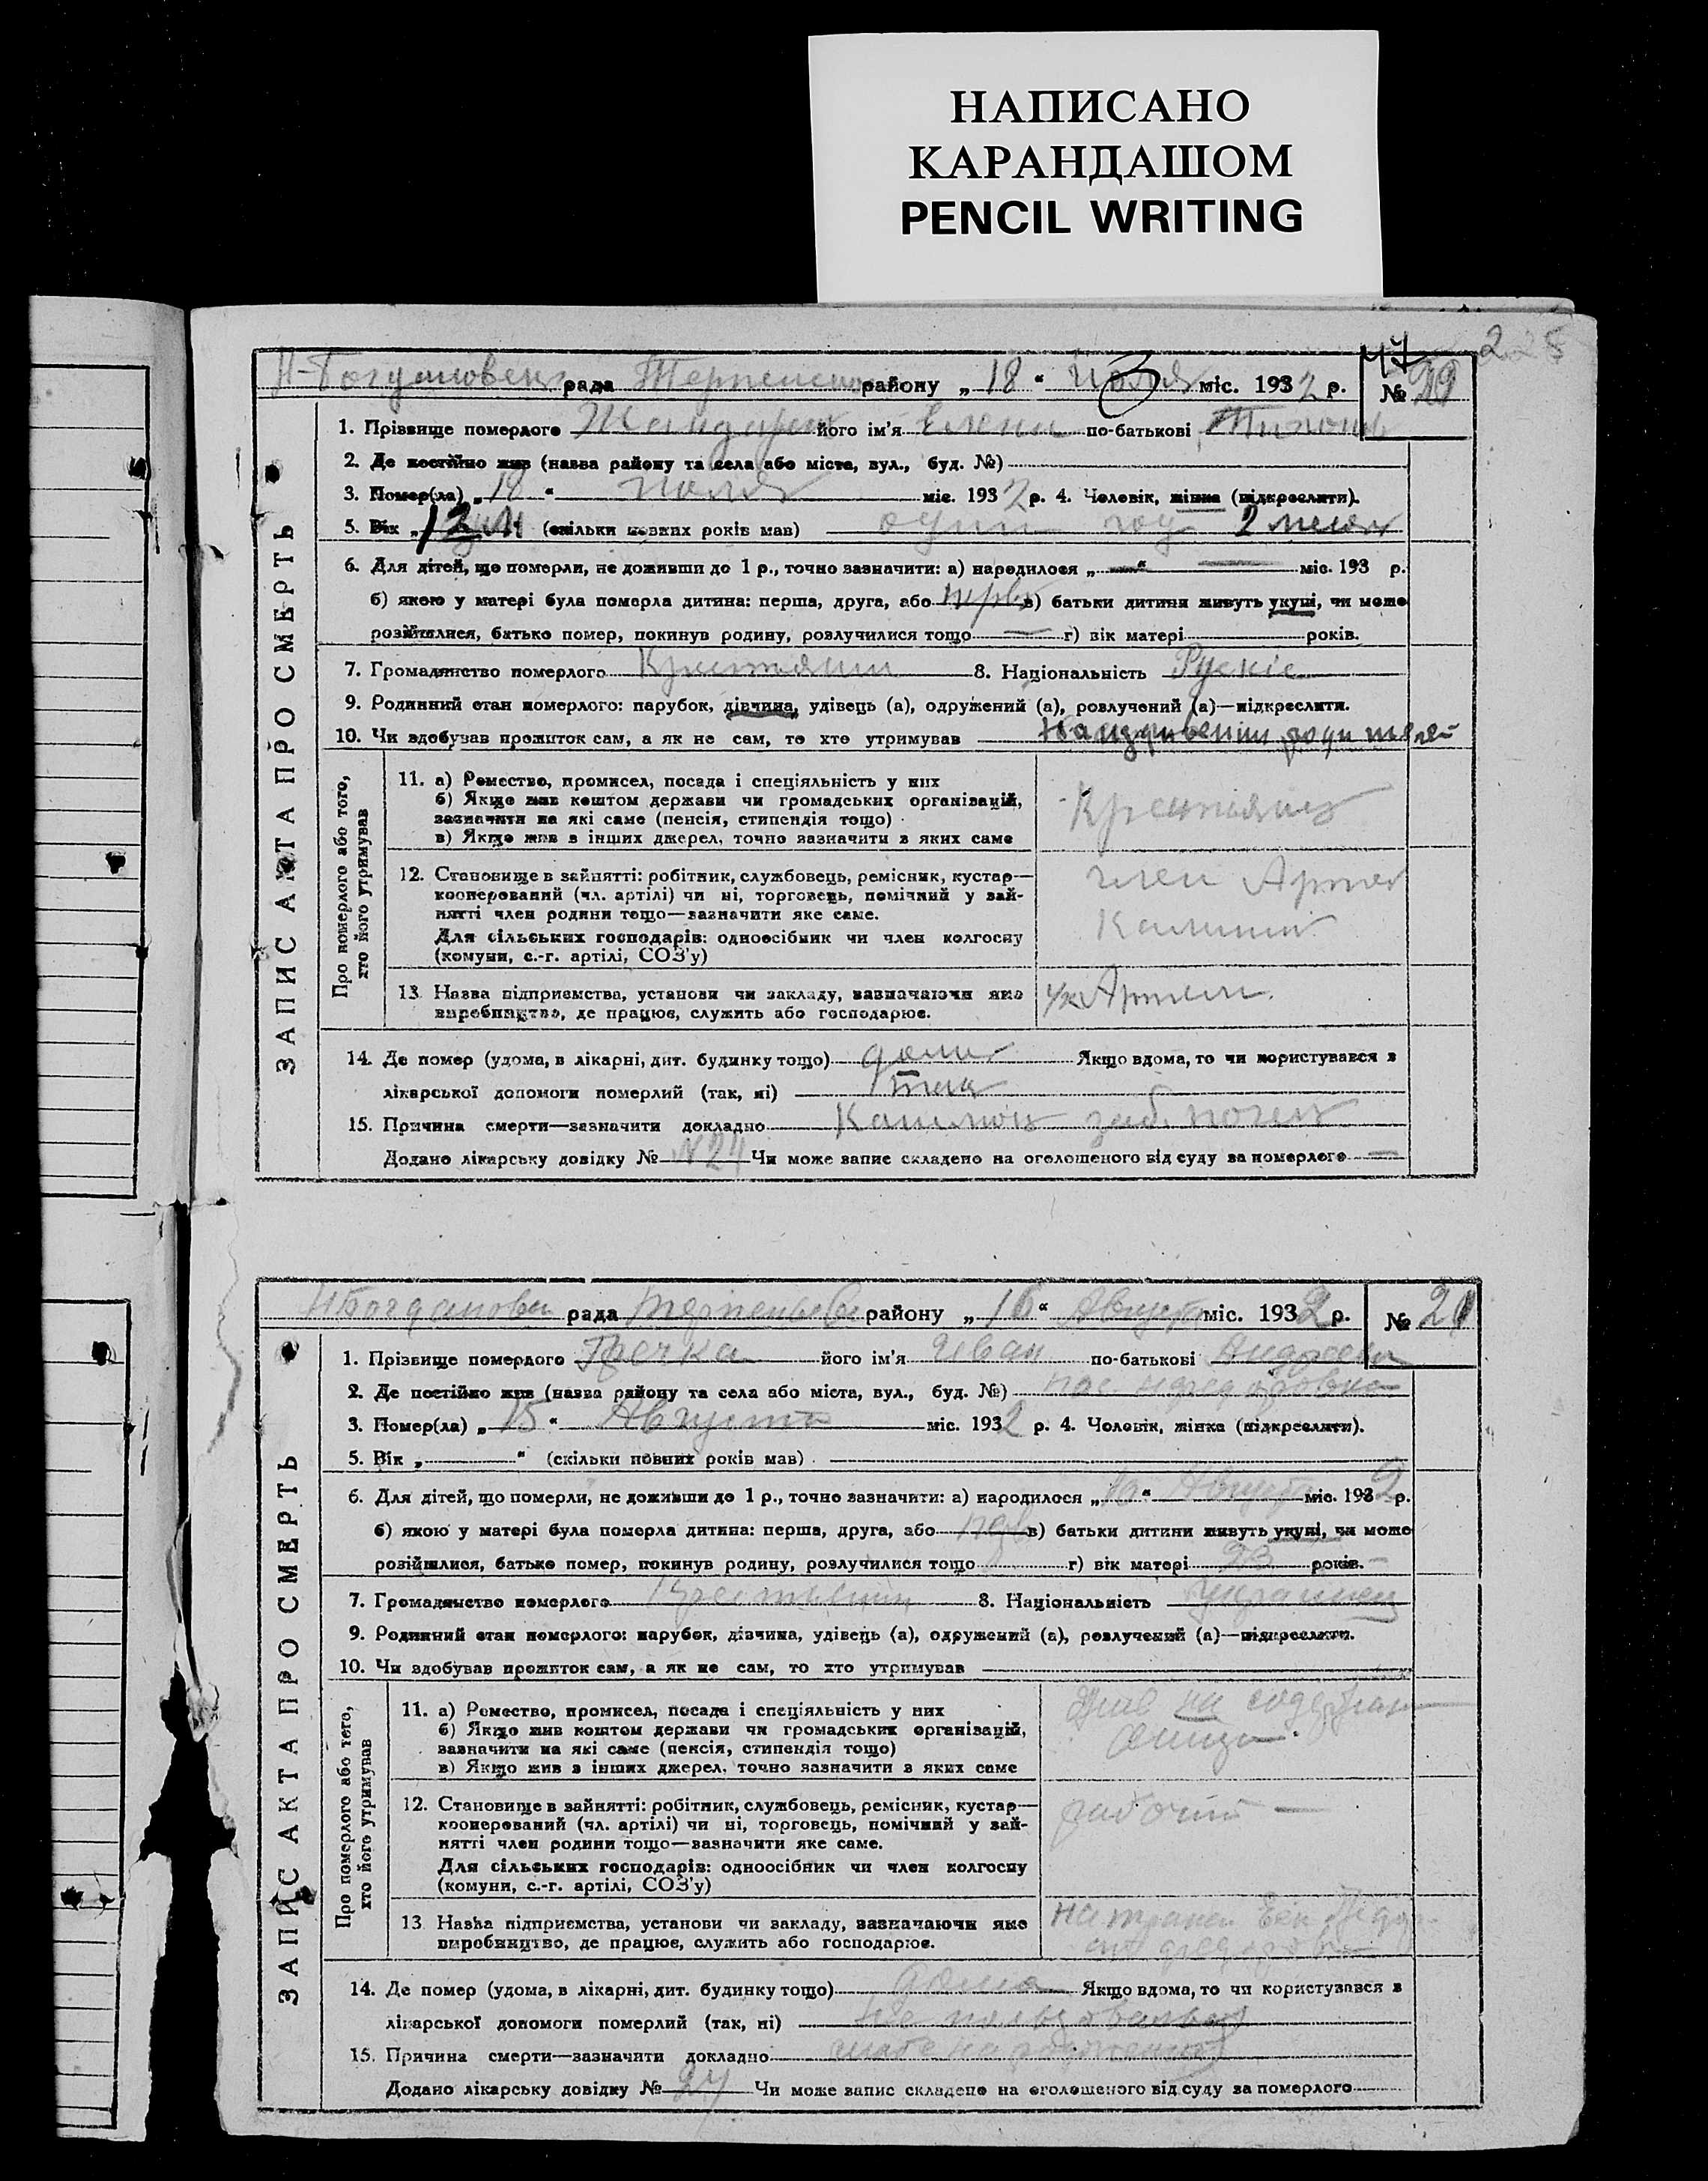 НАПИСАНО
КАРАНДАШОМ
PENCIL WRITING
225
47
рада район​у „18“ июля міс. 1932 р. № 29
ЗАПИС АКТА ПРО СМЕРТЬ
1. Прізвище померлого його ім'я Елена по-батькові
2. Де постійно жив (назва району та села або міста, вул., буд. №)
3. Помер(ла) „18“ июля міс. 1932 р. 4. Чоловік, жінка (підкреслити).
5. Вік „ “ (скільки повних років мав) один год 2 месяц
6. Для дітей, що померли, не доживши до 1 р., точно зазначити: а) народилося „ “ міс. 193 р.
б) якою у матері була померла дитина: перша, друга, або перв в) батьки дитини живуть укупі, чи може
розійшлися, батько помер, покинув родину, розлучилися тощо — г) вік матері років.
7. Громадянство померлого 8. Національність Рускіе
9. Родинний стан померлого: парубок, дівчина, удівець (а), одружений (а), розлучений (а)—підкреслити.
10. Чи здобував прожиток сам, а як не сам, то хто утримував На иждивении родителей
Про померлого або того, хто його утримував
11. а) Ремество, промисел, посада і спеціяльність у них
б) Якщо жив коштом держави чи громадських організацій,
зазначити на які саме (пенсія, стипендія тощо)
в) Якщо жив з інших джерел, точно зазначити з яких саме
12. Становище в зайнятті: робітник, службовець, ремісник, кустар—
кооперований (чл. артілі) чи ні, торговець, помічний у зай-
нятті член родини тощо—зазначити яке саме.
Для сільських господарів: одноосібник чи член колгоспу
(комуни, с.-г. артілі, СОЗ'у)
член
13. Назва підприємства, установи чи закладу, зазначаючи яке
виробництво, де працює, служить або господарює.
14. Де помер (удома, в лікарні, дит. будинку тощо) дома Якщо вдома, то чи користувався з
лікарської допомоги померлий (так, ні) так
15. Причина смерти—зазначити докладно
Додано лікарську довідку № N 24 Чи може запис складено на оголошеного від суду за померлого —
рада району „16“ Августа міс. 1932 р. №
ЗАПИС АКТА ПРО СМЕРТЬ
1. Прізвище померлого Гречка його ім'я Иван по-батькові Андреевич
2. Де постійно жив (назва району та села або міста, вул., буд. №)
3. Помер(ла) „15“ Августа міс. 1932 р. 4. Чоловік, жінка (підкреслити).
5. Вік „ “ (скільки повних років мав)
6. Для дітей, що померли, не доживши до 1 р., точно зазначити: а) народилося „ “ Августа міс. 1932 р.
б) якою у матері була померла дитина: перша, друга, або перв в) батьки дитини живуть укупі, чи може
розійшлися, батько помер, покинув родину, розлучилися тощо г) вік матері 23 років.
7. Громадянство померлого 8. Національність Украинец
9. Родинний стан померлого: парубок, дівчина, удівець (а), одружений (а), розлучений (а)—підкреслити.
10. Чи здобував прожиток сам, а як не сам, то хто утримував
Про померлого або того, хто його утримував
11. а) Ремество, промисел, посада і спеціяльність у них
б) Якщо жив коштом держави чи громадських організацій,
зазначити на які саме (пенсія, стипендія тощо)
в) Якщо жив з інших джерел, точно зазначити з яких саме
на
12. Становище в зайнятті: робітник, службовець, ремісник, кустар—
кооперований (чл. артілі) чи ні, торговець, помічний у зай-
нятті член родини тощо—зазначити яке саме.
Для сільських господарів: одноосібник чи член колгоспу
(комуни, с.-г. артілі, СОЗ'у)
рабочий —
13. Назва підприємства, установи чи закладу, зазначаючи яке
виробництво, де працює, служить або господарює.
14. Де помер (удома, в лікарні, дит. будинку тощо) дома Якщо вдома, то чи користувався з
лікарської допомоги померлий (так, ні) не пользовался
15. Причина смерти—зазначити докладно
Додано лікарську довідку № 24 Чи може запис складено на оголошеного від суду за померлого